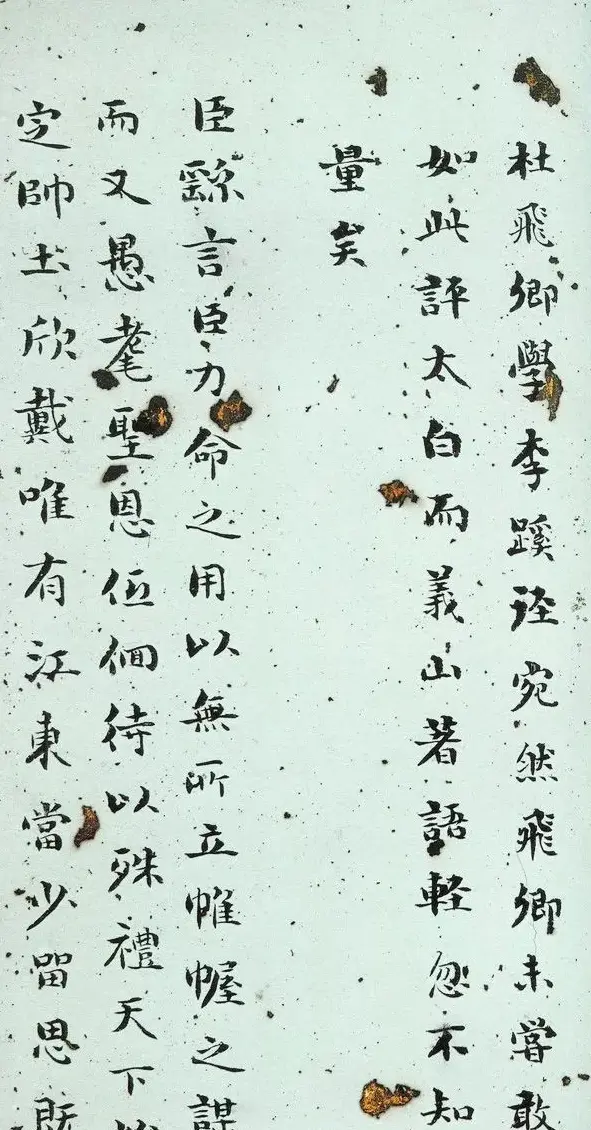 杜飛卿學李蹊逕宛然飛卿未嘗敢
如此評太白而義山著語軽忽不知
量矣
臣繇言臣力命之用以無所立帷幄之謀
而又愚耄聖恩伍佪待以殊禮天下
定帥土欣戴唯有江東當少留思既